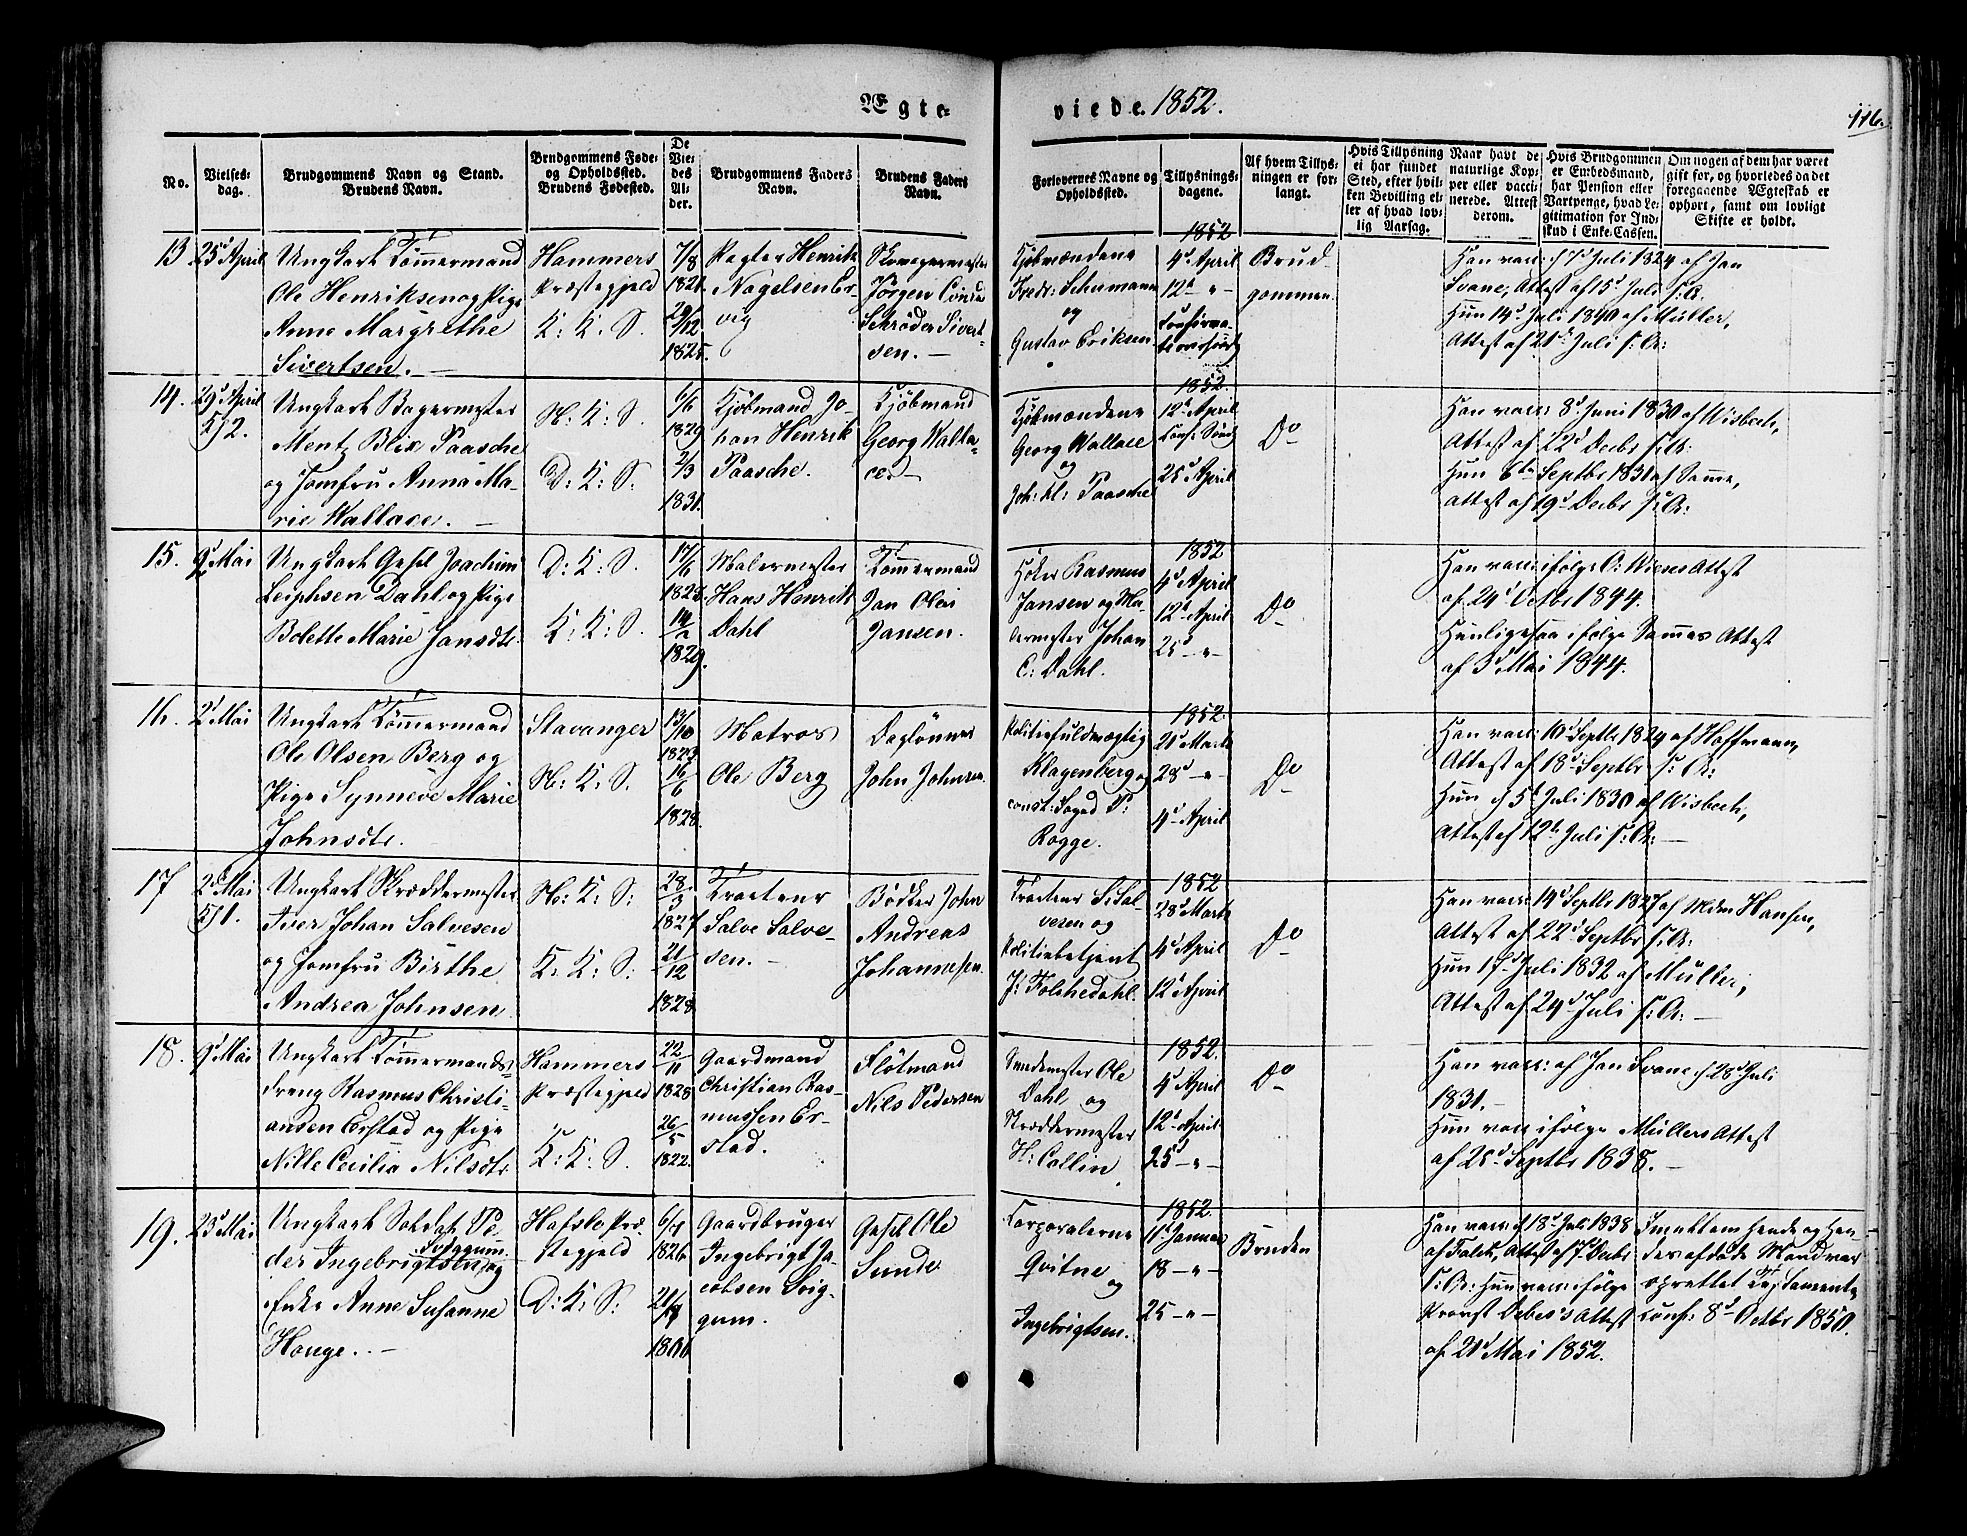 Ægte-
viede. 1852.
116.
No.
Vielses-
dag.
Brudgommens Navn og Stand.
Brudens Navn.
Brudgommens Føde-
og Opholdssted.
Brudens Fødested.
De
Vie-
des
Al-
der.
Brudgommens Faders
Navn.
Brudens Faders
Navn.
Forlovernes Navne og
Opholdssted.
Tillysnings-
dagene.
Af hvem Tillys-
ningen er for-
langt.
Hvis Tillysning
ei har fundet
Sted, efter hvil-
ken Bevilling el-
ler af hvad lov-
lig Aarsag.
Naar havt de
naturlige Kop-
per eller vacci-
nerede. Attest
derom.
Hvis Brudgommen
er Embedsmand,
har Pension eller
Vartpenge, hvad Le-
gitimation for Ind-
skud i Enke-Cassen.
Om nogen af dem har været
gift før, og hvorledes da det
foregaaende Ægteskab er
ophørt, samt om lovligt
Skifte er holdt.
13
25d April
Ungkarl Tømmermand
Ole Henriksen og Pige
Anne Margrethe
Sivertsen. —
Hammers
Præstegjeld
K: K: S.
7/8
1821.
20/12
1825.
Pagter Henrik
Nagelsen Er-
vig
Skomagermester
Jørgen
Schrøder Sivert-
sen. —
Kjøbmændene
Fredr: Schumann
og
Gustav Eriksen
1852
4d April
12te - " -
Brud-
gommen.
Han vacc: d 7d Juli 1824 af Jan
Svane, Attest af 15d Juli s: A.
Hun 14d Juli 1840 af Müller,
Attest af 21d Juli s: A:
14.
29d April
5/2.
Ungkarl Bagermester
Mentz Blix Paasche
og Jomfru Anna Ma-
rie Wallace. —
N: K: S.
D: K: S.
6/6
1829
2/3
1831.
Kjøbmand Jo-
han Henrik
Paasche.
Kjøbmand
Georg Walla-
ce. —
Kjøbmændene
Georg Wallace
og
Joh: Kl: Paasche
1852.
12te April
25d April
Do
Han vacc: 8d Juni 1830 af Wisbech,
Attest af 22d Decbr s: A:
Hun 6te Septbr 1831 af Samme,
Attest af 19d Decbr s: A:
15.
9d Mai
Ungkarl Gesel Joachim
Leiphsen Dahl og Pige
Bolette Marie Jansdtr.
D: K: S.
K: K: S.
17/6
1828.
1829.
Malermester
Hans Henrik
Dahl
Tømmermand
Jan Olai
Jansen.
Høker Rasmus
Jansen og Ma-
lermester Johan
C: Dahl.
1852
4d April
12te April
25d - " -
Do
Han vacc: ifølge O: Wiens Attest
af 24d Octbr 1844.
Hun ligesaa ifølge Sammes Attest
af 3d Mai 1844.
16.
2d Mai
Ungkarl Tømmermand
Ole Olsen Berg og
Pige Synneve Marie
Johnsdtr.
Stavanger
N: K: S.
13/10
1823
16/6
1828.
Matros
Ole Berg
Daglønner
John Johnsen
Politiefuldmægtig
Klagenberg og
const: Foged P:
Rogge.
1852.
21d Marts
28d - " -
4d April
Do
Han vacc: 10d Septbr 1824 af Hoffmann,
Attest af 18d Septbr s: A:
Hun d 5d Juli 1830 af Wisbech,
Attest af 12te Juli s: A: —
17
2d Mai
5/1.
Ungkarl Skræddermester
Iver Johan Salvesen
og Jomfru Birthe
Andrea Johnsen.
N: K: S:
K: K: S:
28/3
1827
21/12
1828.
Tracteur
Salve Salve-
sen. —
Bødker John
Andreas
Johannesen.
Tracteur S: Sal-
vesen og
Politiebetjent
J: Folchedahl.
1852
28d Marts
4d April
12te April
Do
Han vacc: 14d Septbr 1827 af Mdm Hansen,
Attest af 22d Septbr s: A:
Hun 17d Juli 1832 af Müller,
Attest af 24d Juli s: A: —
18.
9d Mai
Ungkarl Tømmermands-
dreng Rasmus Christi-
ansen Erstad og Pige
Nille Cecilia Nilsdtr
Hammers
Præstegjeld
K: K: S.
22/11
1828
26/5
1822.
Gaardmand
Christian Ras-
mussen Er-
stad.
Fløtmand
Nils Pedersen
Smedemester Ole
Dahl og
Skræddermester
H: Collin
1852.
4d April
12te April
25d - " -
Do
Han vacc: af Jan Svane d 28d Juli
1831. —
Hun vacc: ifølge Müllers Attest
af 25d Septbr 1838. —
19.
23d Mai
Ungkarl Soldat Pe-
der Ingebrigtsen Sviggum og
Enke Anne Susanne
Hauge. . —
Hafslo Præ-
stegjeld
D: K: S:
1826
1806
Gaardbruger
Ingebrigt Ja-
cobsen Svig-
gum.
Gesel Ole
Sunde
Corporalerne
Qvitne
og
Ingebrigtsen.
1852.
11d Januar
18 - " -
25 - " -
Bruden
Han vacc: d 18d Juli 1838
af Falck, Attest af 7d Decbr
s: A: Hun vacc: ifølge
Provst Debes's Attest
af 21d Mai 1852.
Imellem Hende og Hen-
des afdøde Mand var
oprettet Testament
conf: 8d Octbr 1850.